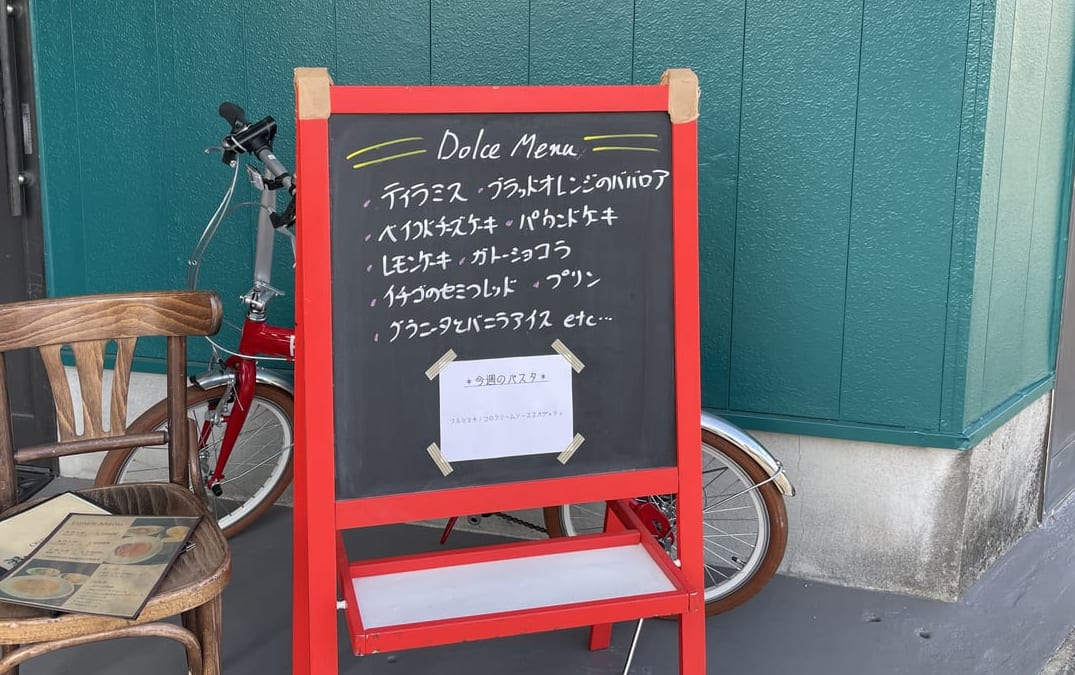 Dolce Menu
・ティラミス ・ブラッドオレンジのババロア
・ベイクドチーズケーキ ・パウンドケーキ
・レモンケーキ ・ガトーショコラ
・イチゴのセミフレッド ・プリン
・グラニータとバニラアイス etc…
*今週のパスタ*